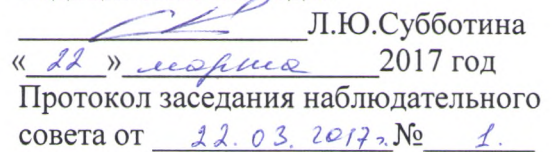 Л.Ю.Субботина
«22» марта 2017 год
Протокол заседания наблюдательного
совета от 22.03.2017г. № 1.